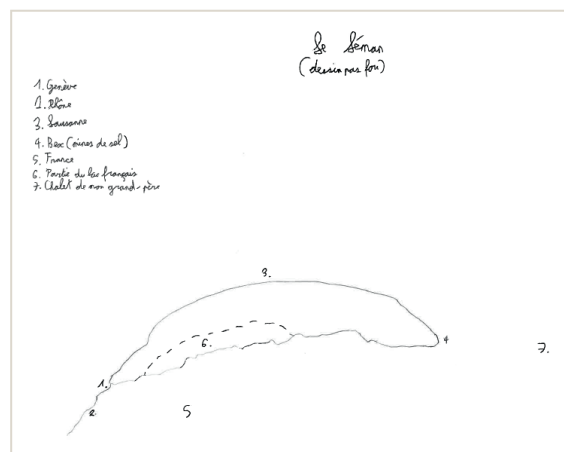 Le Léman
(dessin pas fou)
1. Genève
2. Rhône
3. Lausanne
4. Bex (mines de sel)
5. France
6. Partie du lac français
7. Chalet de mon grand-père
3.
6.
4
7.
1.
2
5